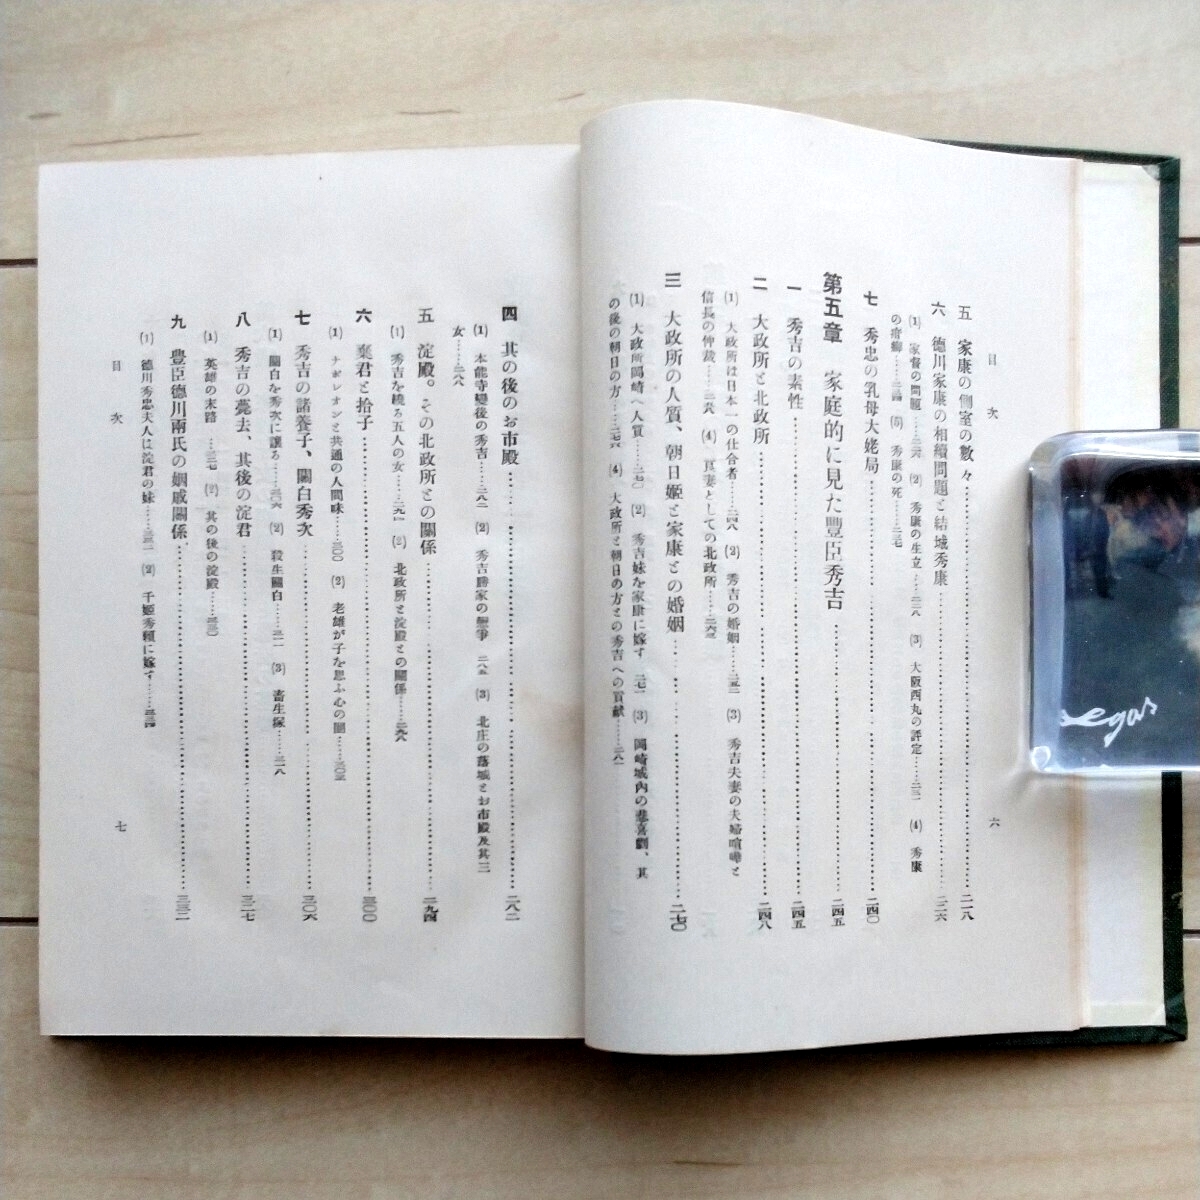 目次
五 家康の側室の數々……二一八
六 德川家康の相續問題と結城秀康……二二六
(1) 家督の問題……二二六 (2) 秀康の生立……二二八 (3) 大阪西丸の評定……二三一 (4) 秀康
の……二三四 (5) 秀康の死……二三七
七 秀忠の乳母大姥局……二四〇
第五章 家庭的に見た豐臣秀吉……二四五
一 秀吉の素性……二四五
二 大政所と北政所……二四八
(1) 大政所は日本一の仕合者……二四八 (2) 秀吉の婚姻……二五二 (3) 秀吉夫妻の夫婦喧嘩と
信長の仲裁…… (4) 良妻としての北政所……二六三
三 大政所の人質、朝日姬と家康との婚姻……二七〇
(1) 大政所岡崎へ人質……二七〇 (2) 秀吉妹を家康に嫁す 二七一 (3) 岡崎城內の悲喜劇、其
の後の朝日の方……二七六 (4) 大政所と朝日の方との秀吉への貢献……二八一
六
四 其の後のお市殿……二八二
(1) 本能寺變後の秀吉……二八二 (2) 秀吉勝家の戀爭 二八五 (3) 北庄の落城とお市殿及其三
女……二八八
五 淀殿。その北政所との關係……二九四
(1) 秀吉を繞る五人の女……二九一 (2) 北政所と淀殿との關係……二九八
六 棄君と拾子……三〇〇
(1) ナポレオンと共通の人間味……三〇〇 (2) 老雄が子を思ふ心の闇……三〇三
七 秀吉の諸養子、關白秀次……三〇六
(1) 關白を秀次に讓る……三〇六 (2) 殺生關白……三一一 (3) 畜生塚……三一八
八 秀吉の薨去、其後の淀君……三二七
(1) 英雄の末路……三二七 (2) 其の後の淀殿……三三〇
九 豐臣德川兩氏の姻戚關係……三三二
(1) 德川秀忠夫人は淀君の妹……三三二 (2) 千姬秀賴に嫁す……三三四
目次
七
egas